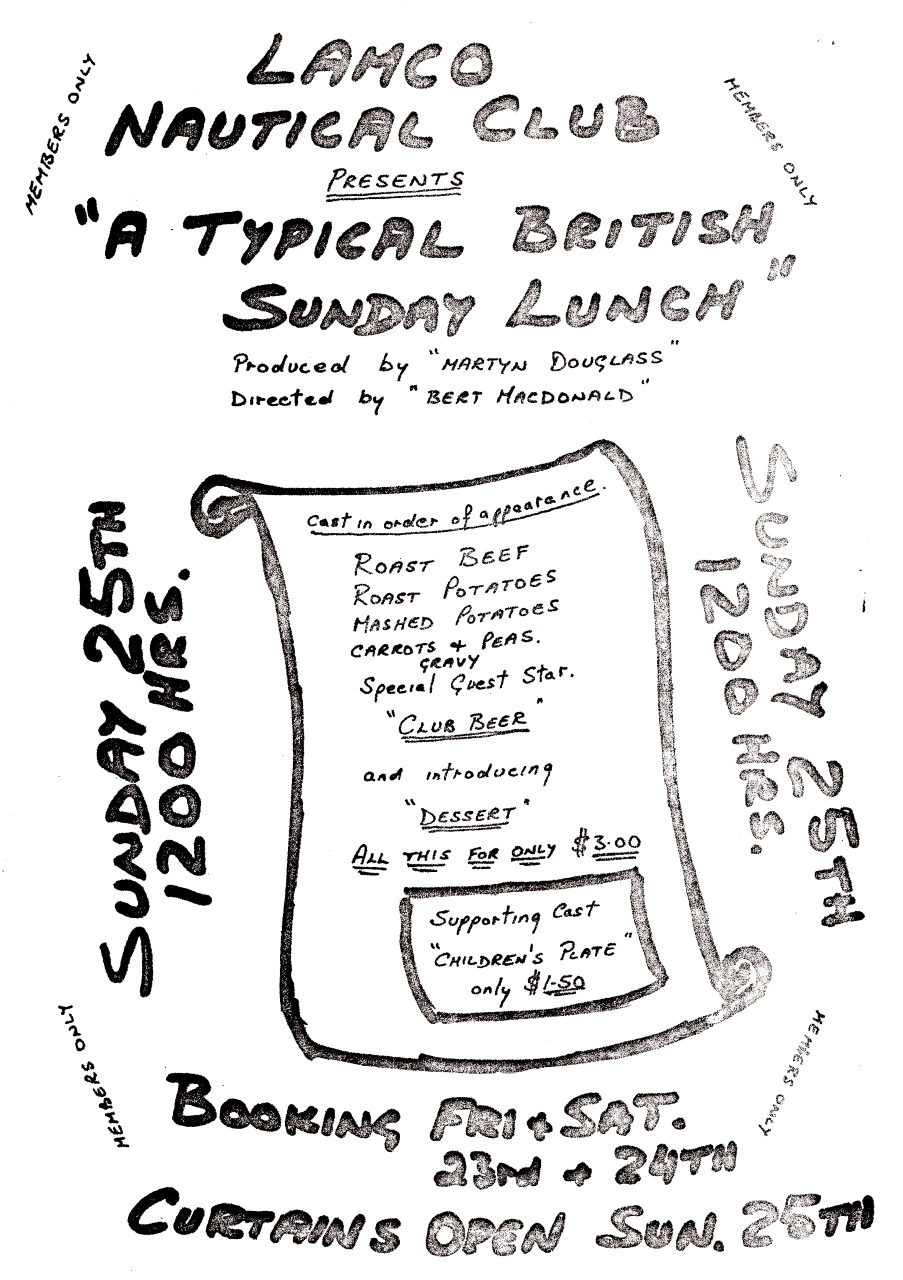 LAMCO
NAUTICAL CLUB
MEMBERS ONLY
MEMBERS ONLY
PRESENTS
"A TYPICAL BRITISH
SUNDAY LUNCH"
Produced by "MARTYN DOUGLASS"
Directed by "BERT MACDONALD"
SUNDAY 25TH
1200 HRS.
Cast in order of appearance.
ROAST BEEF
ROAST POTATOES
MASHED POTATOES
CARROTS + PEAS.
GRAVY
Special Guest Star.
"CLUB BEER"
and introducing
"DESSERT"
ALL THIS FOR ONLY $3.00
Supporting Cast
"CHILDREN'S PLATE"
only $1-50
SUNDAY 25TH
1200 HRS.
MEMBERS ONLY
MEMBERS ONLY
BOOKING FRI + SAT.
23RD + 24TH
CURTAINS OPEN SUN. 25TH